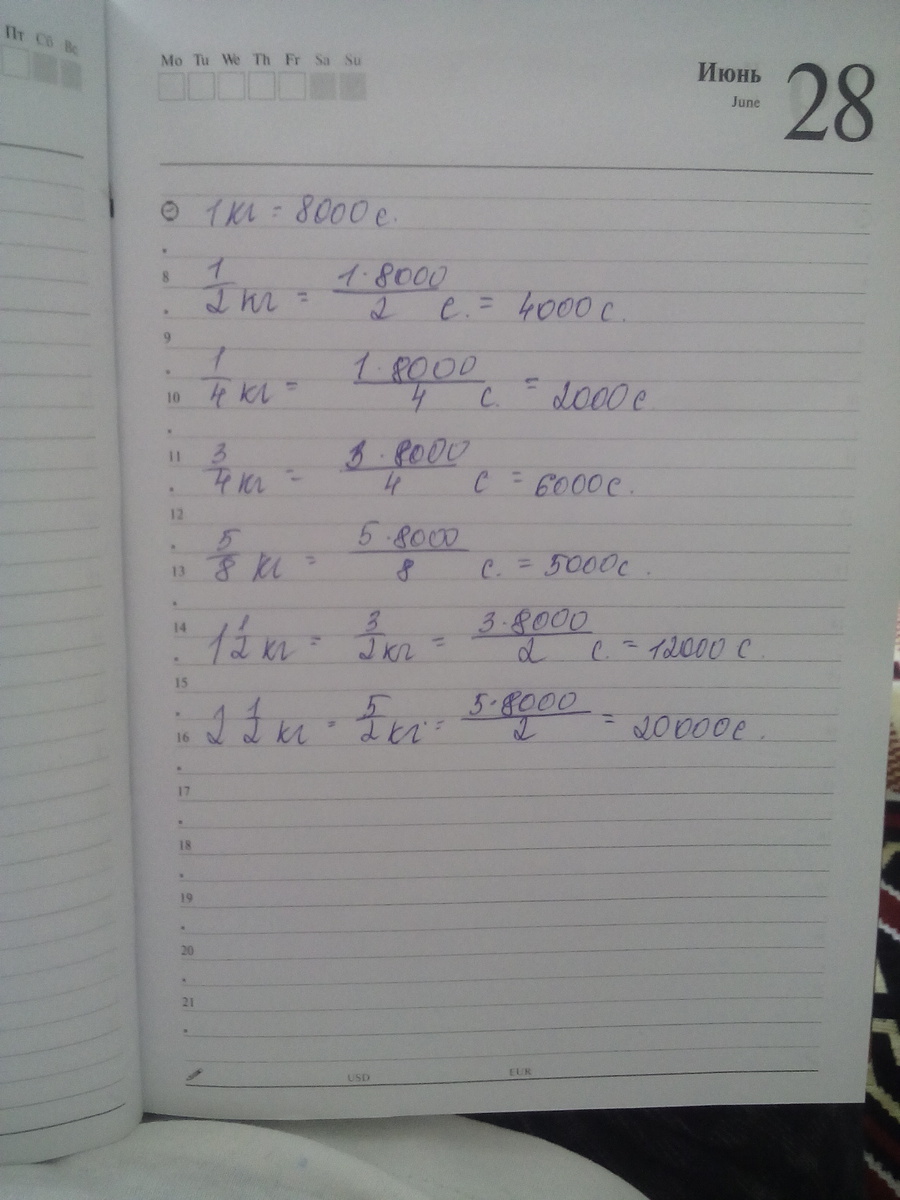 Пт Сб Вс
Mo Tu We Th Fr Sa Su
Июнь
June
28
1 кг = 8000 с.
8 1/2 кг = 1·8000/2 с. = 4000 с.
9
10 1/4 кг = 1·8000/4 с. = 2000 с
11 3/4 кг = 3·8000/4 с = 6000 с.
12
13 5/8 кг = 5·8000/8 с. = 5000 с.
14 1 1/2 кг = 3/2 кг = 3·8000/2 с. = 12000 с.
15
16 2 1/2 кг = 5/2 кг = 5·8000/2 = 20000 с.
17
18
19
20
21
USD EUR